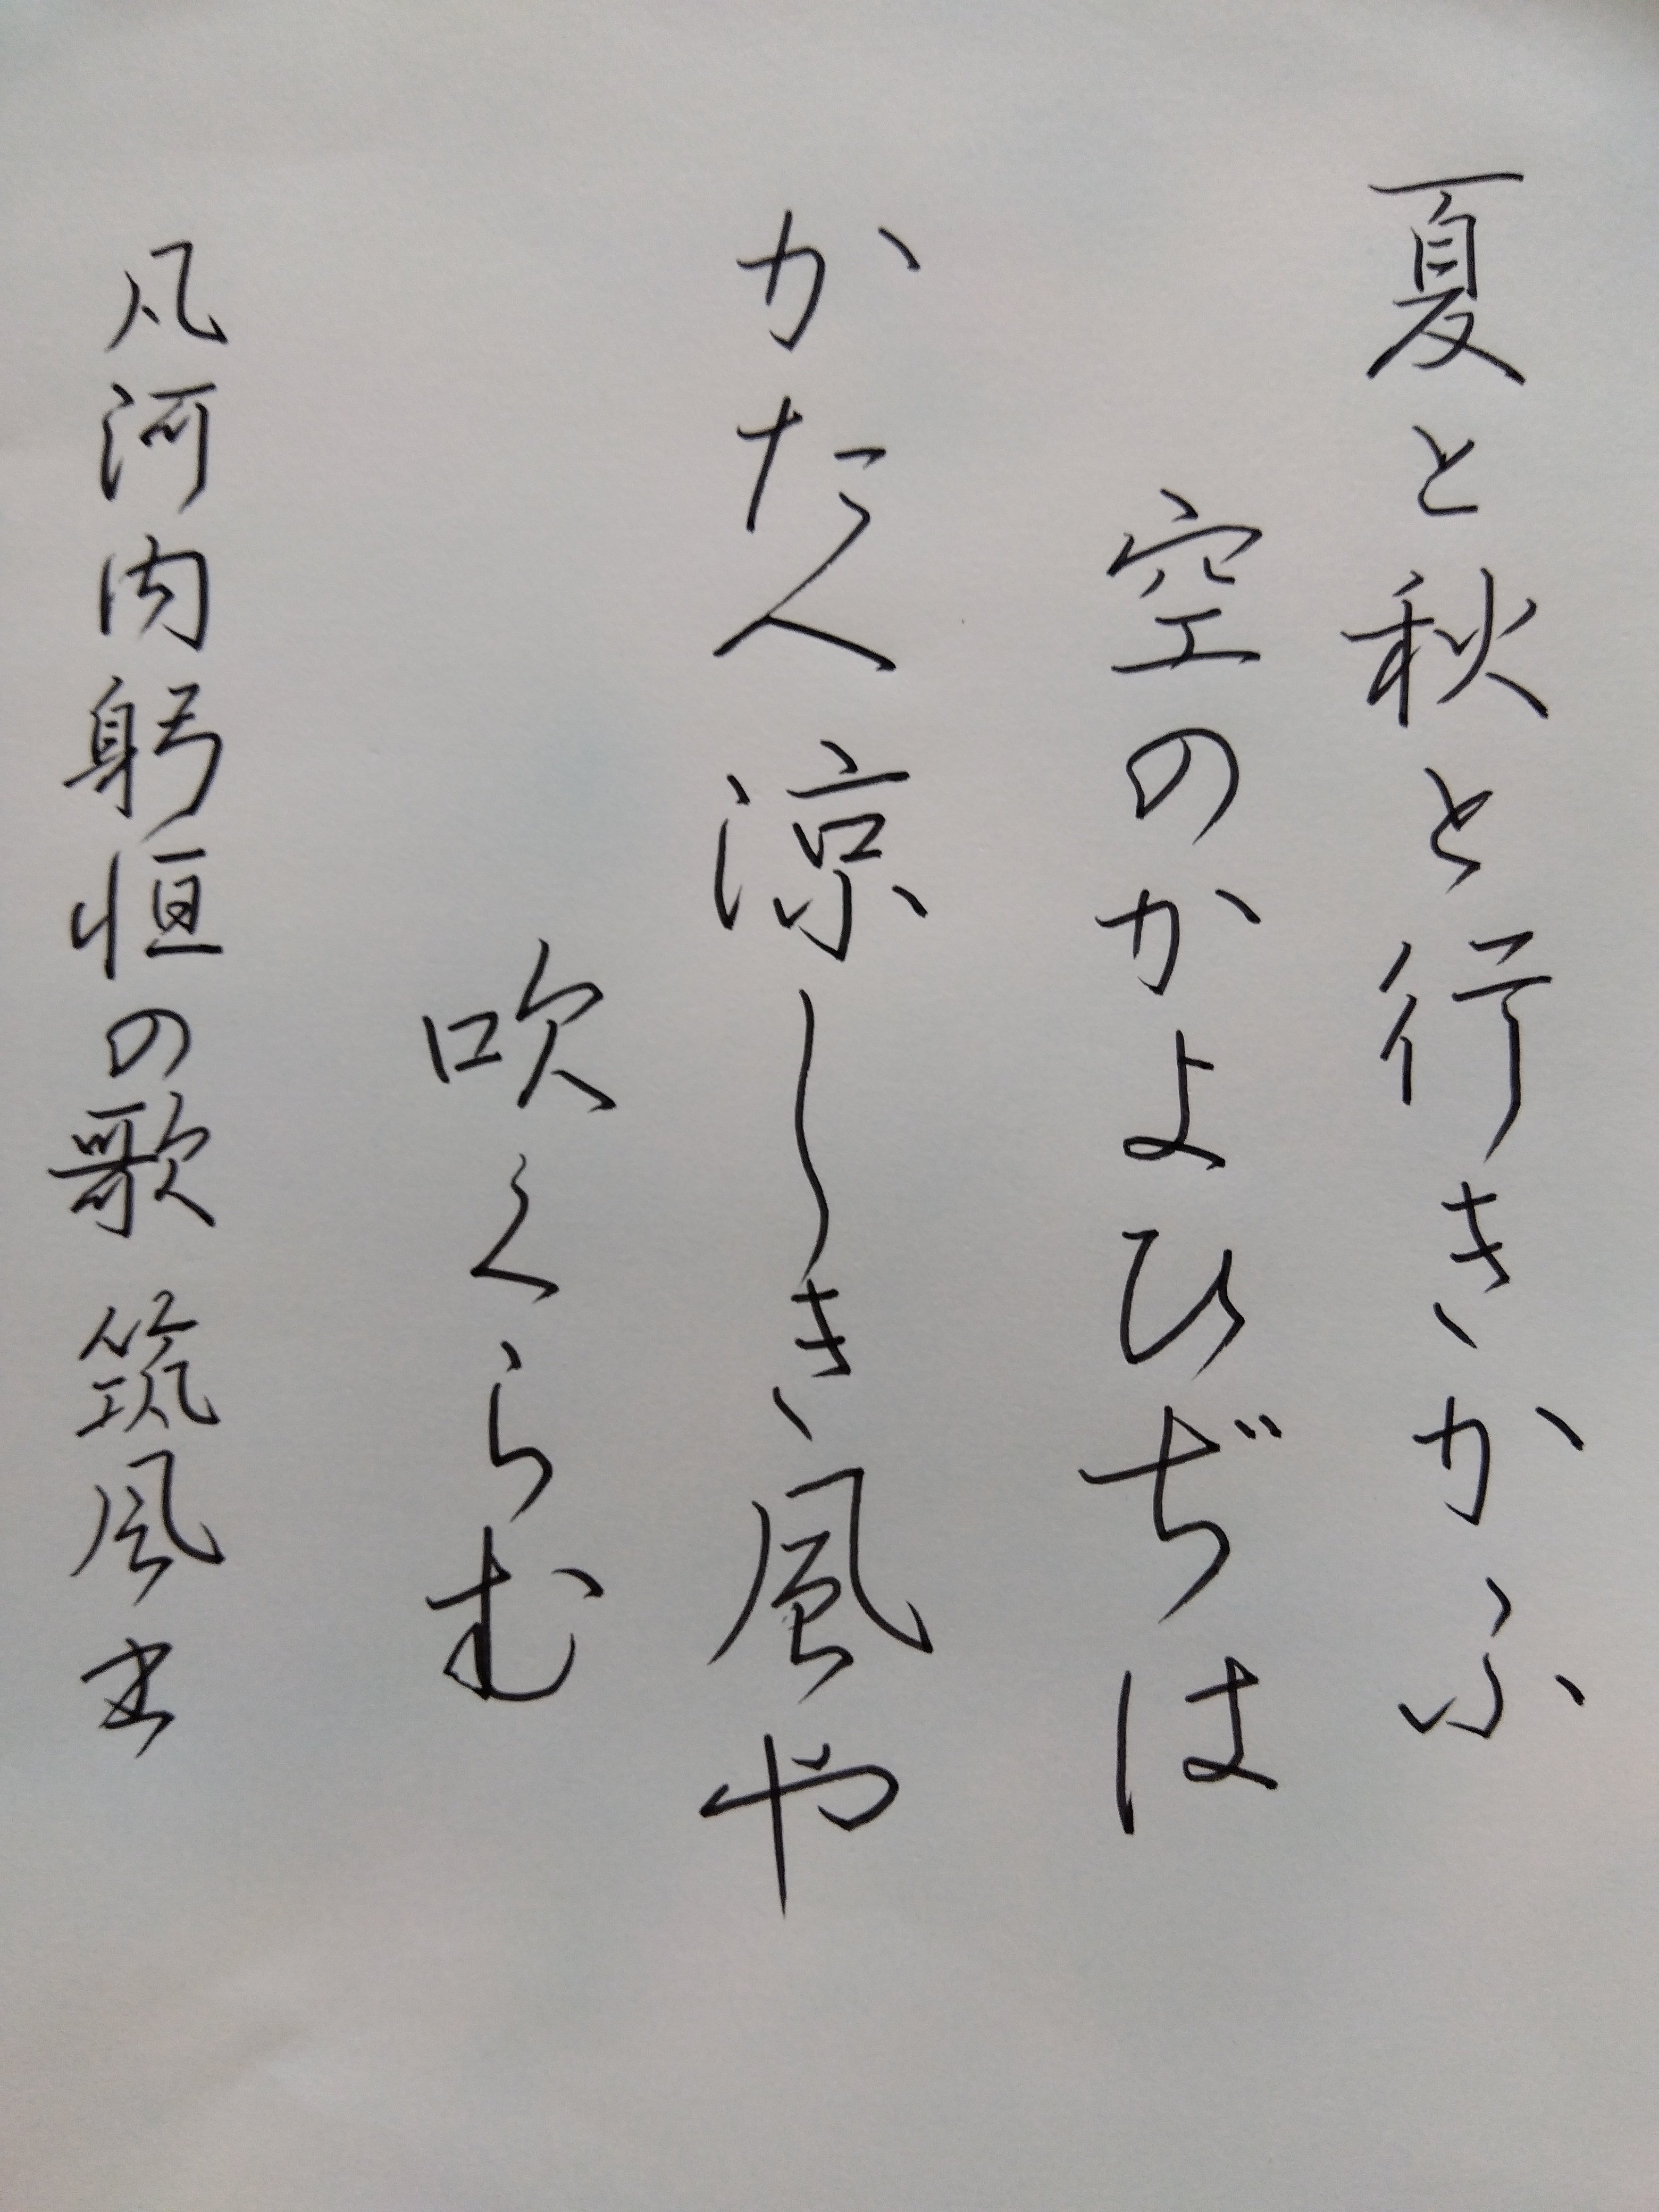 夏と秋と行きかふ
空のかよひぢは
かたへ涼しき風や
吹くらむ
凡河内躬恒の歌 筑風書